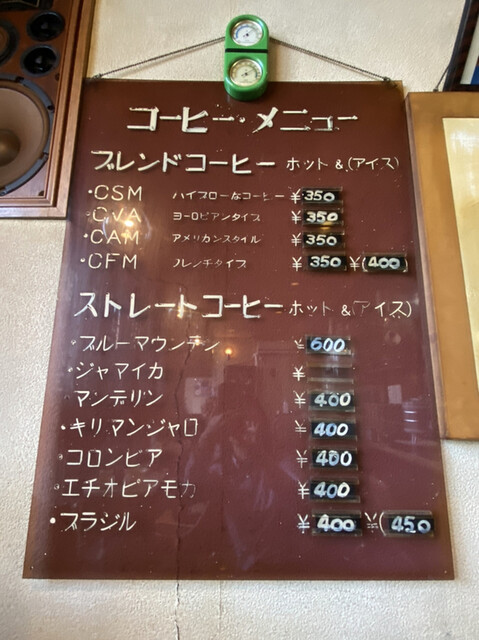 コーヒー・メニュー
ブレンドコーヒー ホット & (アイス)
・CSM ハイブローなコーヒー ¥350
・CVA ヨーロピアンタイプ ¥350
・CAM アメリカンスタイル ¥350
・CFM フレンチタイプ ¥350 ¥(400
ストレートコーヒー ホット & (アイス)
・ブルーマウンテン ¥600
・ジャマイカ ¥
マンデリン ¥400
・キリマンジャロ ¥400
・コロンビア ¥400
・エチオピアモカ ¥400
・ブラジル ¥400 ¥(450